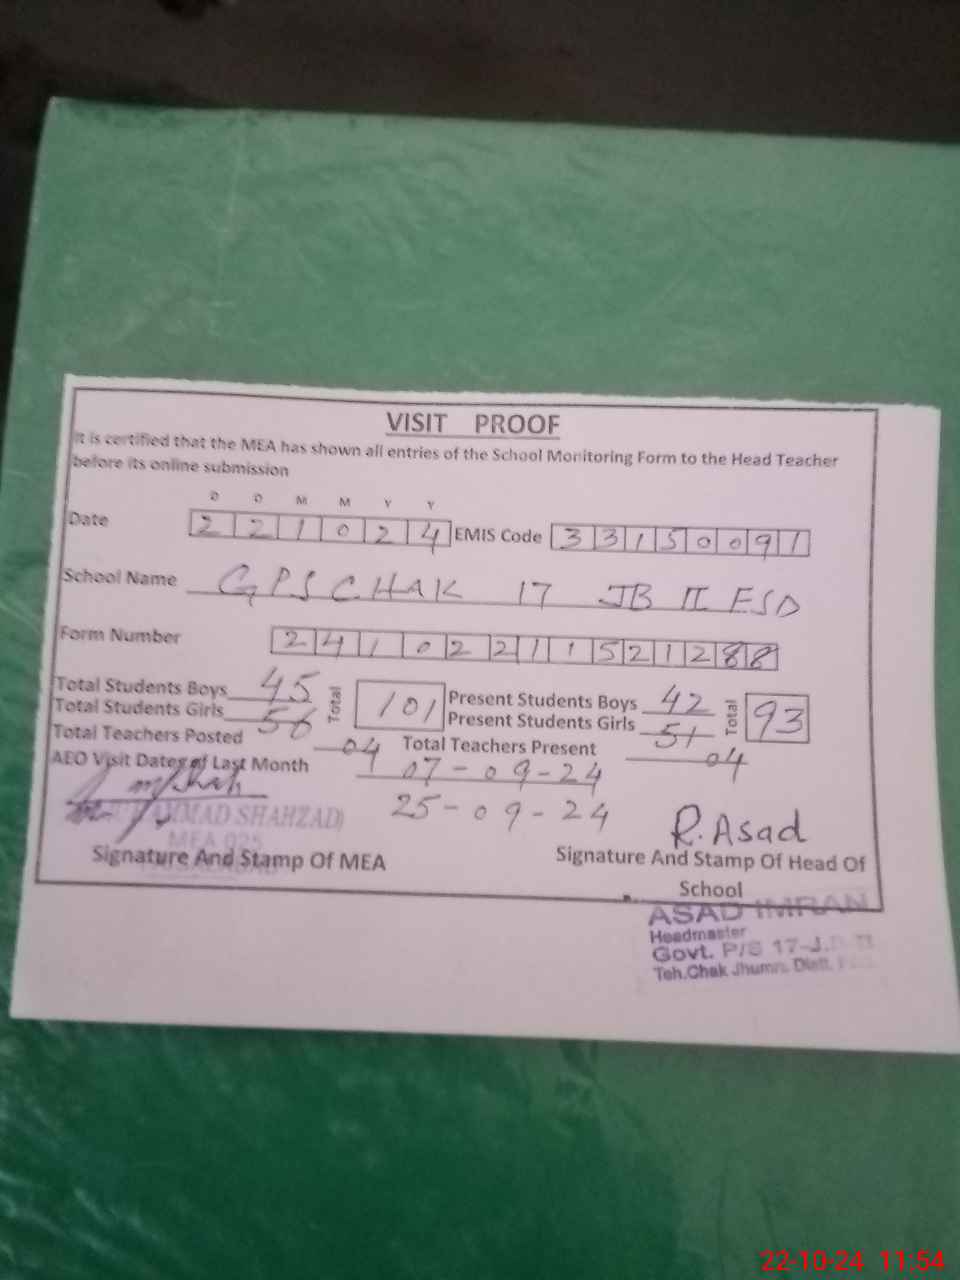 VISIT PROOF
It is certified that the MEA has shown all entries of the School Monitoring Form to the Head Teacher
before its online submission
D D M M Y Y
Date 2 2 1 0 2 4 EMIS Code 3 3 1 5 0 0 9 1
School Name GPS CHAK 17 JB II FSD
Form Number 2 4 1 0 2 2 1 1 5 2 1 2 8 8
Total Students Boys 45 Total 101 Present Students Boys 42 Total 93
Total Students Girls 56 Present Students Girls 51
Total Teachers Posted 04 Total Teachers Present 04
AEO Visit Dates of Last Month 07-09-24
25-09-24
MUHAMMAD SHAHZAD
MEA 025
R.Asad
Signature And Stamp Of MEA
Signature And Stamp Of Head Of
School
ASAD IMRAN
Headmaster
Govt. P/S 17-J.B II
Teh.Chak Jhumra. Distt.
22-10-24 11:54